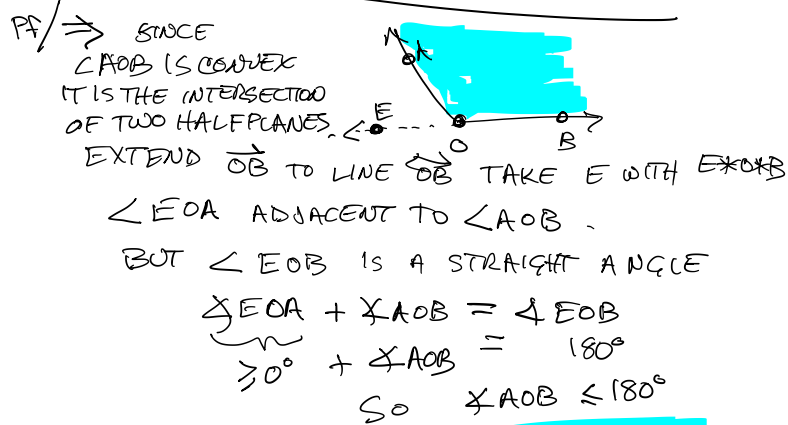 Pf/ ⇒ SINCE
∠AOB IS CONVEX
IT IS THE INTERSECTIO
OF TWO HALFPLANES.
A
E
O
B
EXTEND \overrightarrow{OB} TO LINE \overleftrightarrow{OB} TAKE E WITH E*O*B
∠EOA ADJACENT TO ∠AOB .
BUT ∠EOB IS A STRAIGHT ANGLE
∡EOA + ∡AOB = ∡EOB
≥0° + ∡AOB = 180°
SO ∡AOB ≤ 180°